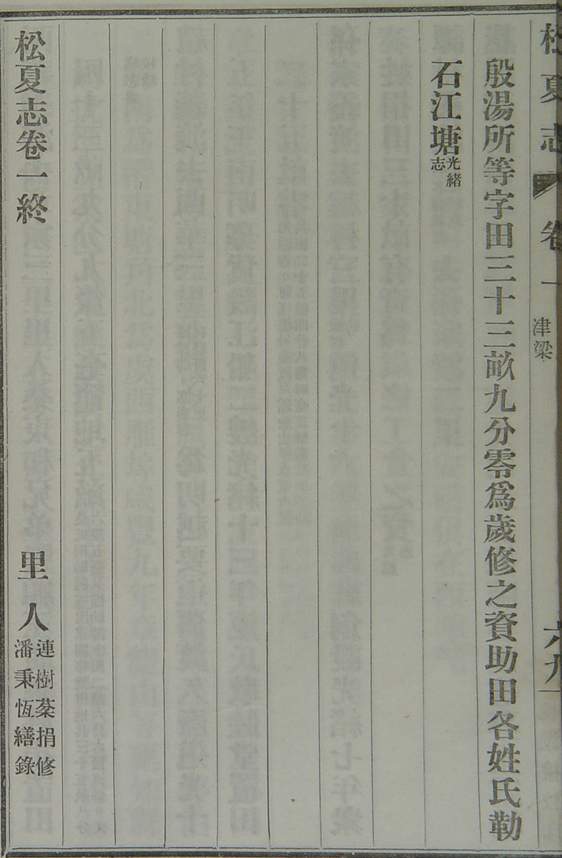 松夏志 卷一 津梁
殷湯所等字田三十三畝九分零爲歲修之資助田各姓氏勒
石江塘光緒志
松夏志卷一終 里人連樹棻捐修潘秉恆繕錄